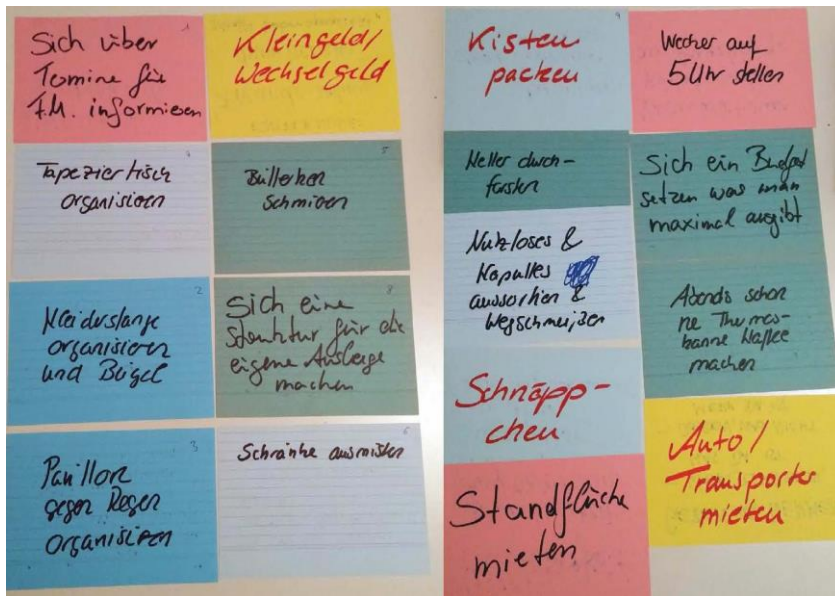 Sich über
Termine für
F.M. informieren
1
Kleingeld/
Wechselgeld
Tapeziertisch
organisieren
4
Büllerken
schmieren
5
Kleiderstange
organisieren
und Bügel
2
Sich eine
Struktur für die
eigene Auslage
machen
8
Pavillon
gegen Regen
organisieren
3
Schränke ausmisten
6
Kisten
packen
9
Wecker auf
5 Uhr stellen
Keller durch-
forsten
Sich ein Budget
setzen was man
maximal ausgibt
Nutzloses &
Kaputtes
aussortieren &
Wegschmeißen
Abends schon
ne Thermos-
kanne Kaffee
machen
Schnäpp-
chen
Auto/
Transporter
mieten
Standfläche
mieten